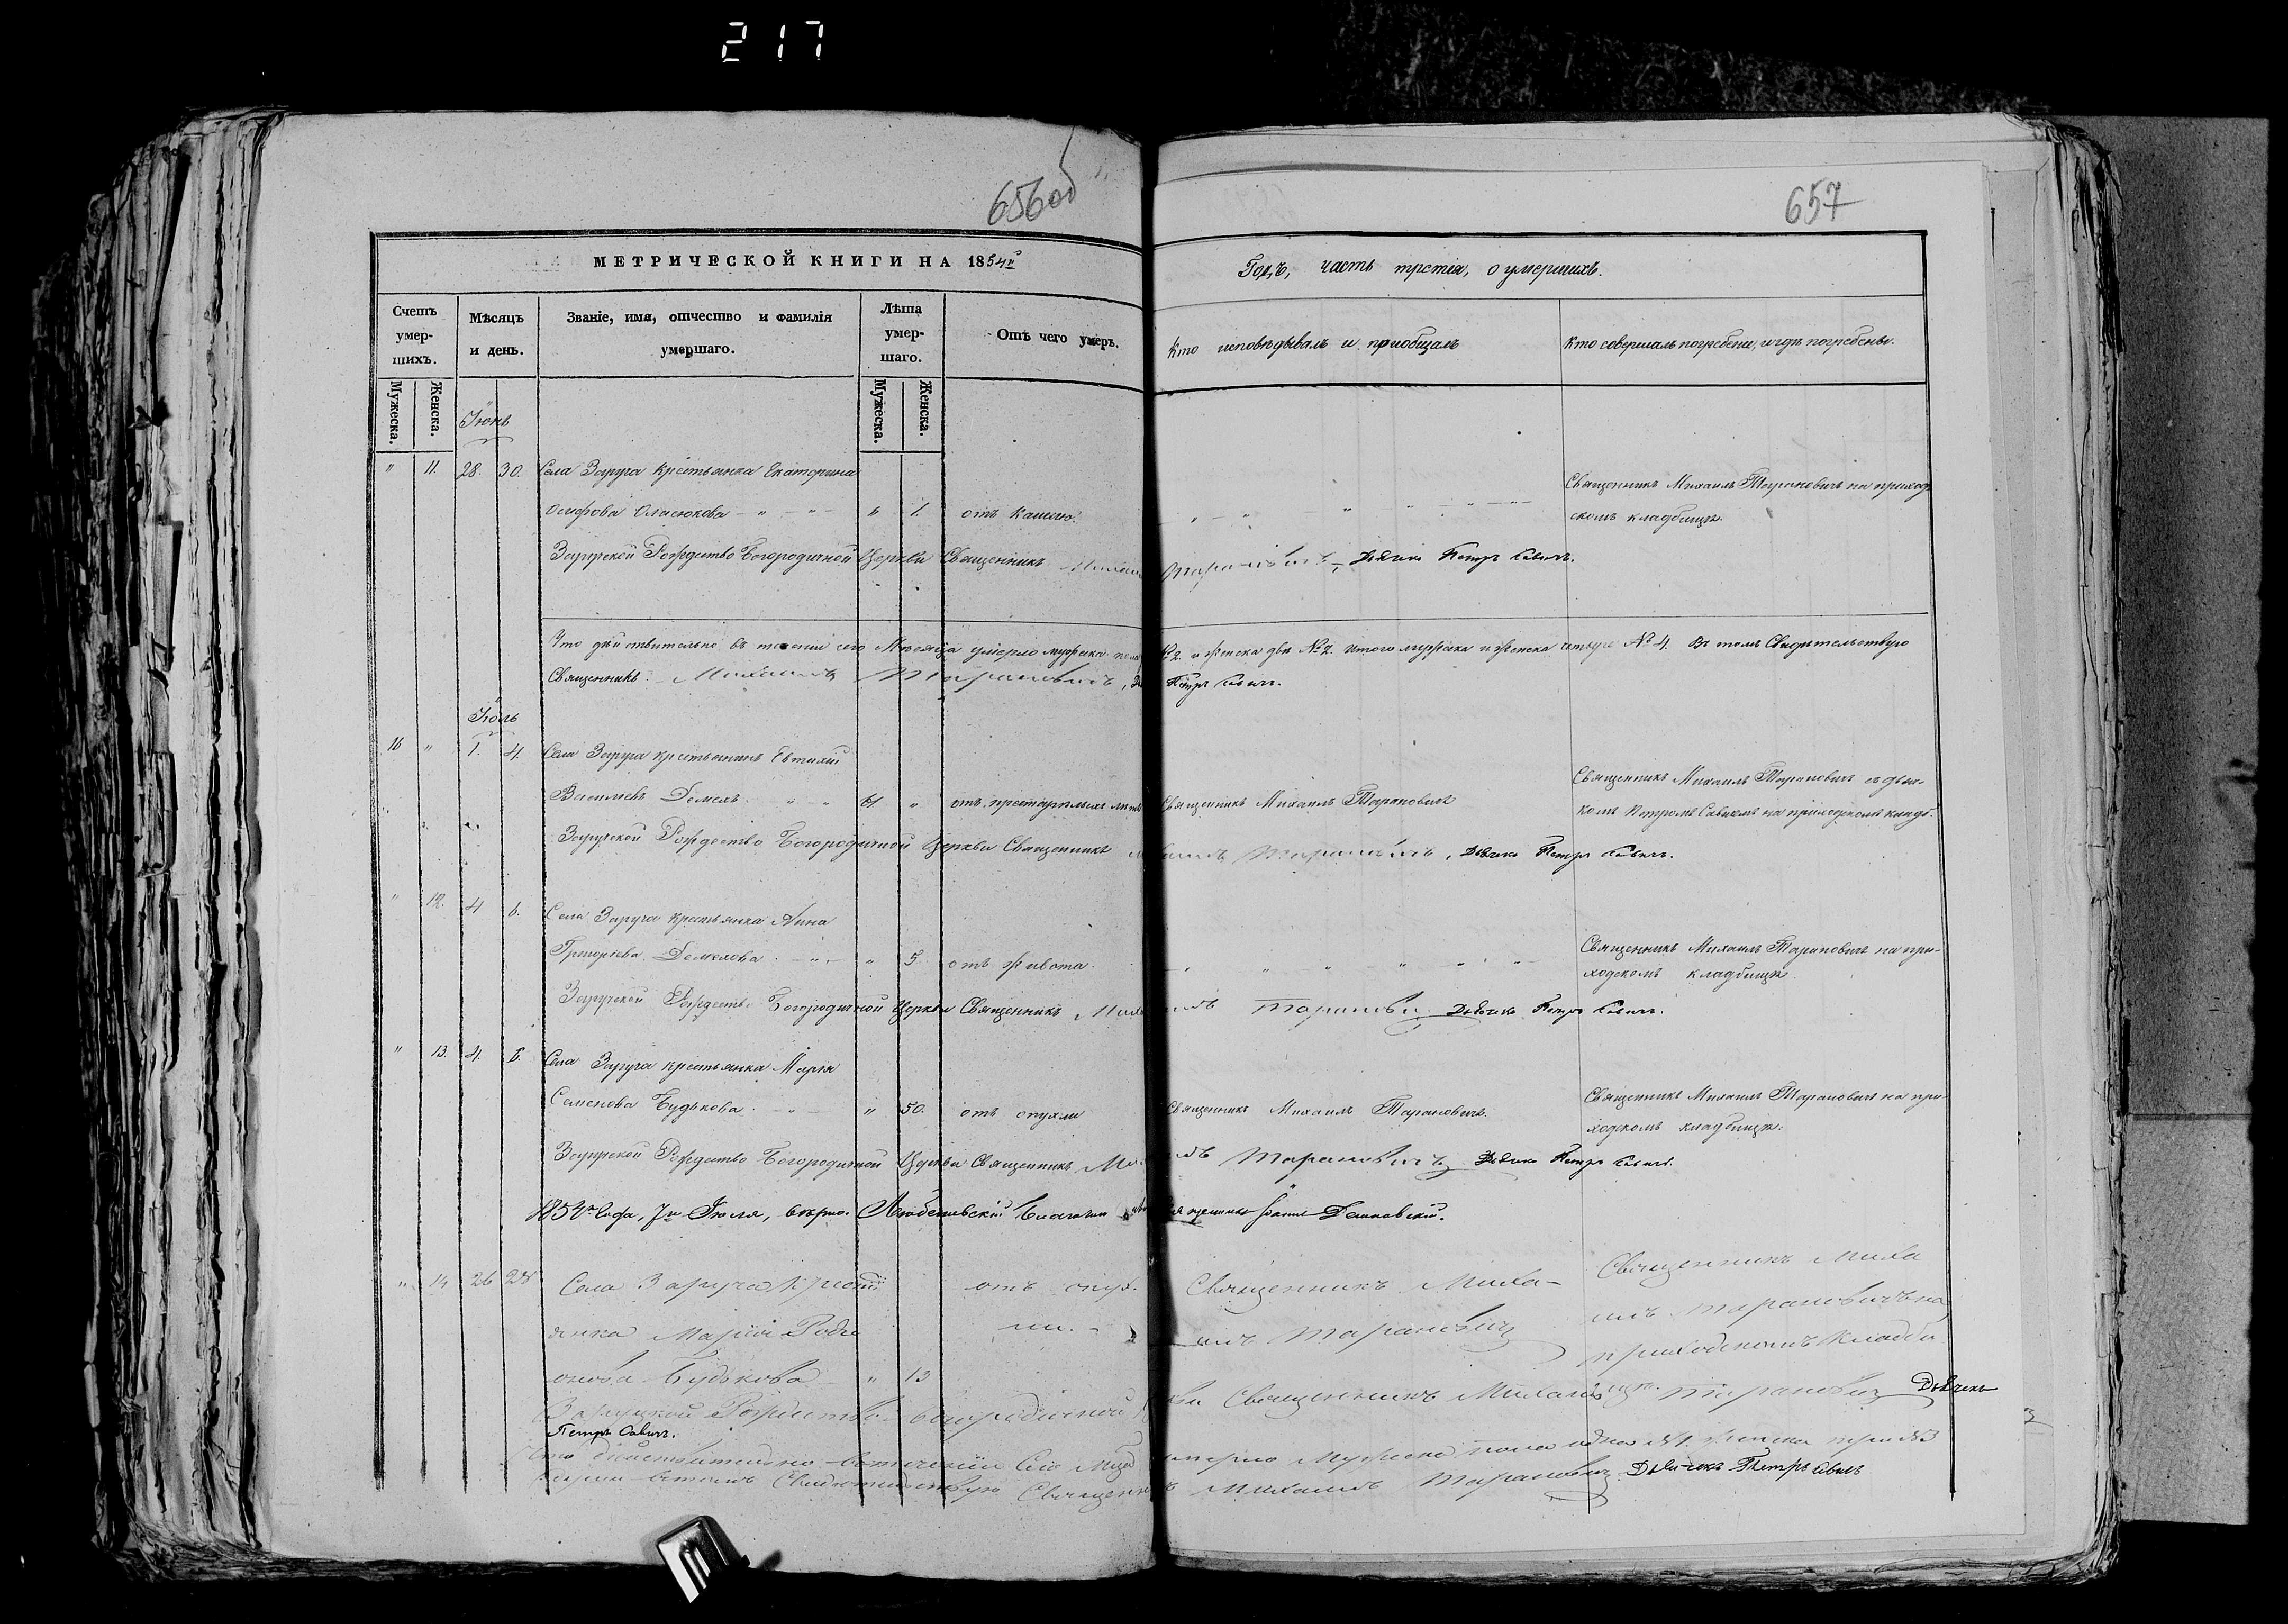 217
656 об
657
МЕТРИЧЕСКОЙ КНИГИ НА 1854й
Годъ, часть третія, о умершихъ.
Счетъ умер-шихъ.
Мѣсяцъ и день.
Званіе, имя, отчество и фамилія умершаго.
Лѣта умер-шаго.
Отъ чего умеръ.
Кто исповѣдывалъ и пріобщалъ
Кто совершалъ погребеніе, и гдѣ погребены.
Мужеска.
Женска.
Мужеска.
Женска.
Іюнь
" 11. 28. 30. Села Заруча крестьянка Екатерина
Священникъ Михаилъ Тарановичъ на приход
Осифова Оласюкова " " 1. отъ кашлю.
скомъ кладбищѣ.
Заручской Рождество Богородичной Церкви Священникъ Михаилъ Тарановичъ, Дьячекъ Петръ Савичъ.
Что дѣйствительно въ теченіи сего Мѣсяца умерло мужеска пола № 2. и женска двѣ № 2. итого мужска и женска четыре № 4. Въ томъ Свидѣтельствую
Священникъ Михаилъ Тарановичъ, Петръ Савичъ.
Іюль
16 " 1. 4. Села Заруча крестьянинъ Евтихій
Священникъ Михаилъ Тарановичъ съ дьяч-
Васильевъ Демехъ " " 61 " отъ престарѣлыхъ лѣтъ Священникъ Михаилъ Тарановичъ
комъ Петромъ Савичемъ на приходскомъ кладб.
Заручской Рождество Богородичной Церкви Священникъ Михаилъ Тарановичъ, Дьячекъ Петръ Савичъ.
" 12. 4 6. Села Заруча крестьянка Анна
Священникъ Михаилъ Тарановичъ на при-
Григоріева Демехова " " 5 отъ живота.
ходскомъ кладбищѣ.
Заручской Рождество Богородичной Церкви Священникъ Михаилъ Тарановичъ Дьячекъ Петръ Савичъ.
" 13. 4. 6. Села Заруча крестьянка Марія
Священникъ Михаилъ Тарановичъ на при-
Семенова Будькова " 50. отъ опухли Священникъ Михаилъ Тарановичъ.
ходскомъ кладбищѣ.
Заручской Рождество Богородичной Церкви Священникъ Михаилъ Тарановичъ Дьячекъ Петръ Савичъ.
1854го Года, 7го Іюля, вѣрно. Любешевскій Благочинный Священникъ Іоаннъ
" 14 26 28 Села Заруча Кресть отъ опух- Священникъ Миха- Священникъ Миха
янка Марія Роді ли. илъ Тарановичъ илъ Тарановичъ на
онова Будькова " 13 приходскомъ кладби
Заруцкой Рождество Богородичной Священникъ Михаилъ щѣ. Тарановичъ Дьячекъ
Петръ Савичъ.
Что дѣйствительно въ теченіи сего умерло Мужеска пола одна №1. Женска три №3
въ томъ Свидѣтельствую Священникъ Михаилъ Тарановичъ Дьячекъ Петръ Савичъ